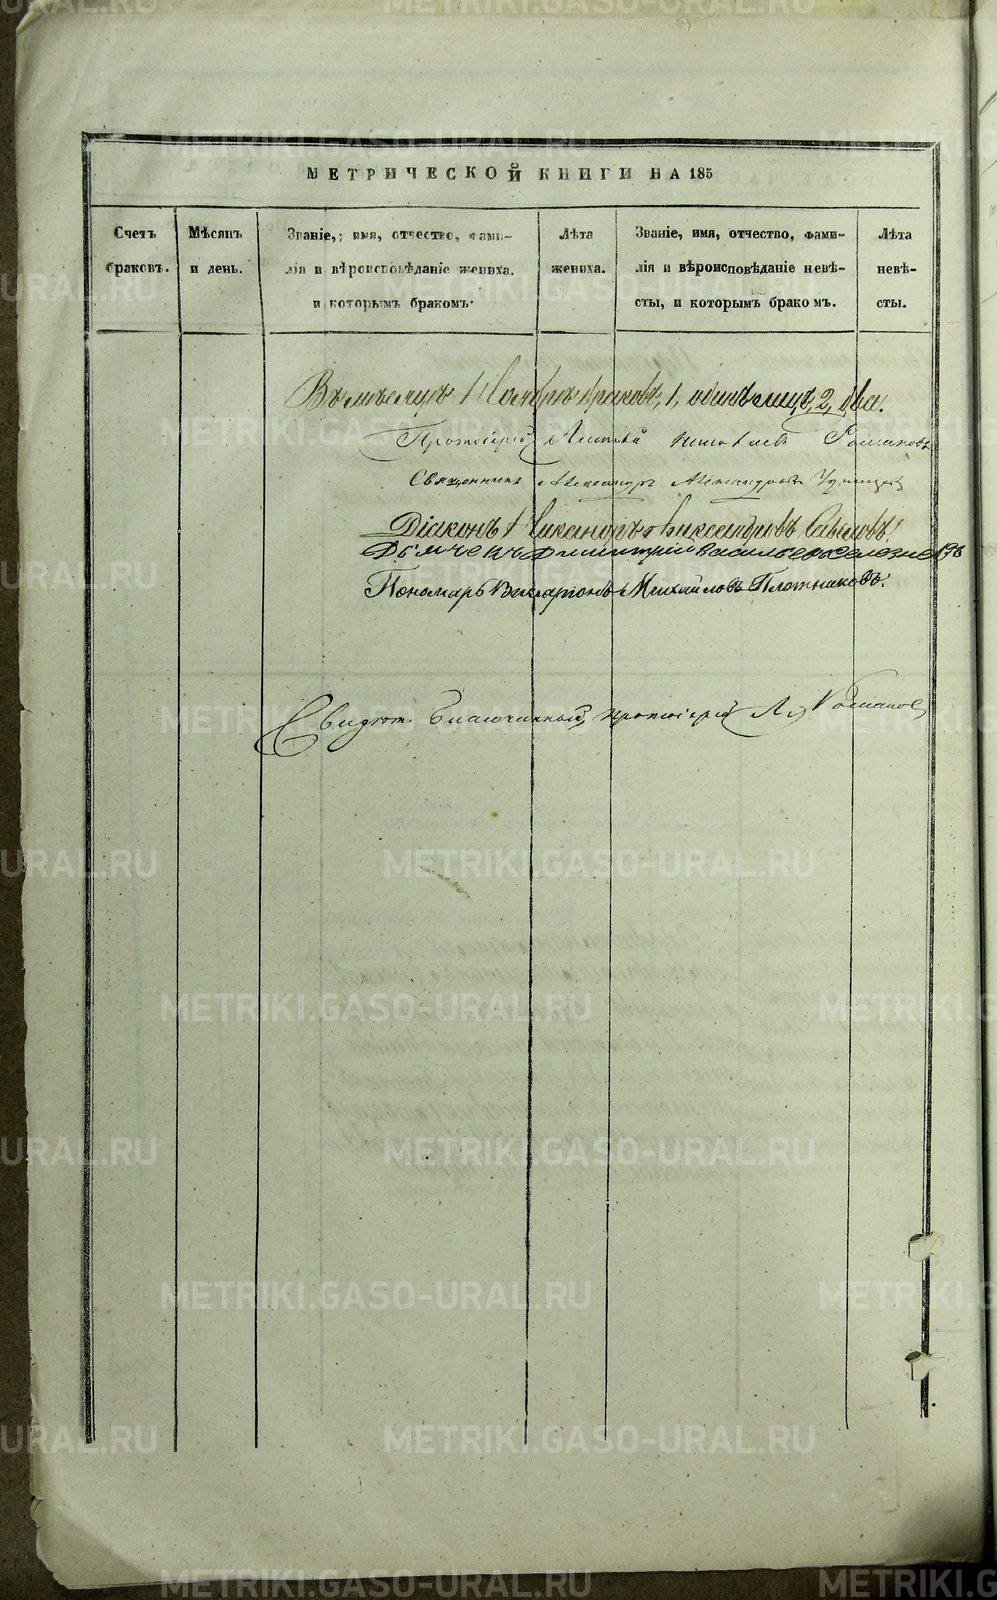 МЕТРИЧЕСКОЙ КНИГИ НА 185
Счетъ браковъ.
Мѣсяцъ и день.
Званіе, имя, отчество, фами-
лія и вѣроисповѣданіе жениха.
и которымъ бракомъ.
Лѣта жениха.
Званіе, имя, отчество, фами-
лія и вѣроисповѣданіе невѣ-
сты, и которымъ бракомъ.
Лѣта невѣ-
сты.
Въ мѣсяцѣ Ноябрѣ браковъ, 1, одинъ лицъ, 2, два.
Протоіерей Романовъ
Священникъ Александръ Александровъ
Діаконъ Никаноръ Александровъ
Дьячекъ Димитрій Васильевъ
Пономарь Михайловъ Плотниковъ.
Свидѣт. Благочинный, протоіерей Романовъ
METRIKI.GASO-URAL.RU